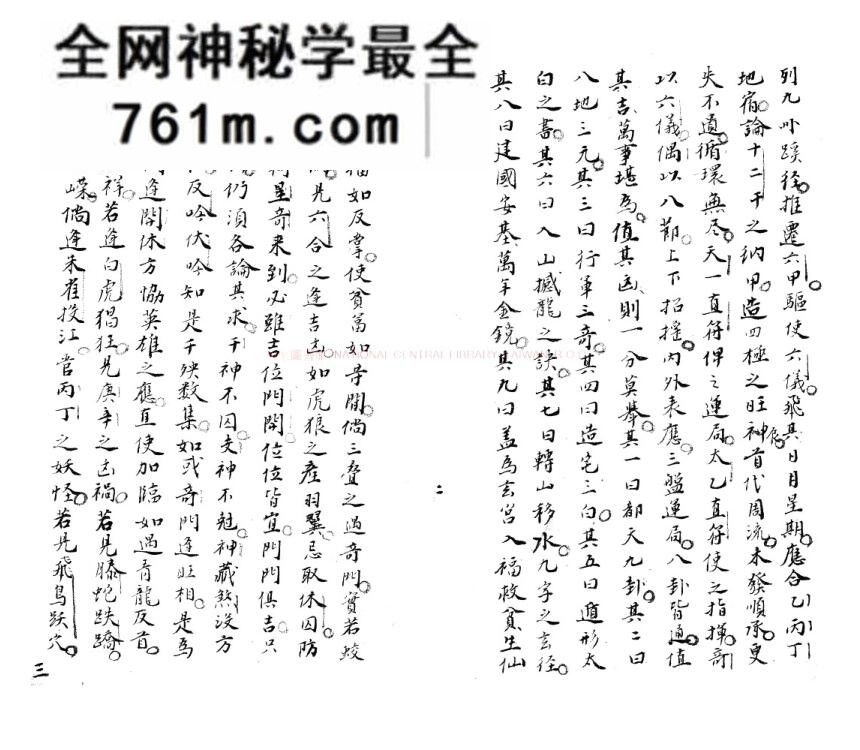 全网神秘学最全
761m.com
列九州蹊徑推遷六甲驅使六儀飛其日月星期應合乙丙丁
地宿論十二干之納甲造四極之旺神首代周流未發順承更
失不道循環無尽天一直符俾之連局太乙直符使之指揮奇
以六儀偶以八節上下招搖內外表應三盤運局八卦皆通值
其吉萬事堪為值其凶則一分莫舉其一曰都天九卦其二曰
八地三元其三曰行軍三奇其四曰造宅三白其五曰遁形太
白之書其六曰入山撼龍之訣其七曰轉山移水九字之玄徑
其八曰建國安基萬年金鏡其九曰盖為玄宮入福救貧生仙
二
福如反掌使貧富如等閒倘三叠之過奇門實若蛟
見六合之逢吉凶如虎狼之產羽翼忌取休囚防
星奇來到必雖吉位門閉位位皆宜門門俱吉只
仍須各論其求干神不囚支神不尅神藏煞沒方
反吟伏吟知是千殃数集如或奇門逢旺相是為
逢開休方恊英雄之應直使加臨如過青龍反首
祥若逢白虎猖狂見庚辛之凶禍若見螣蛇跌蹻
嶸倘逢朱雀投江官丙丁之妖怪若見飛鳥跃穴
三
NATIONAL CENTRAL LIBRARY